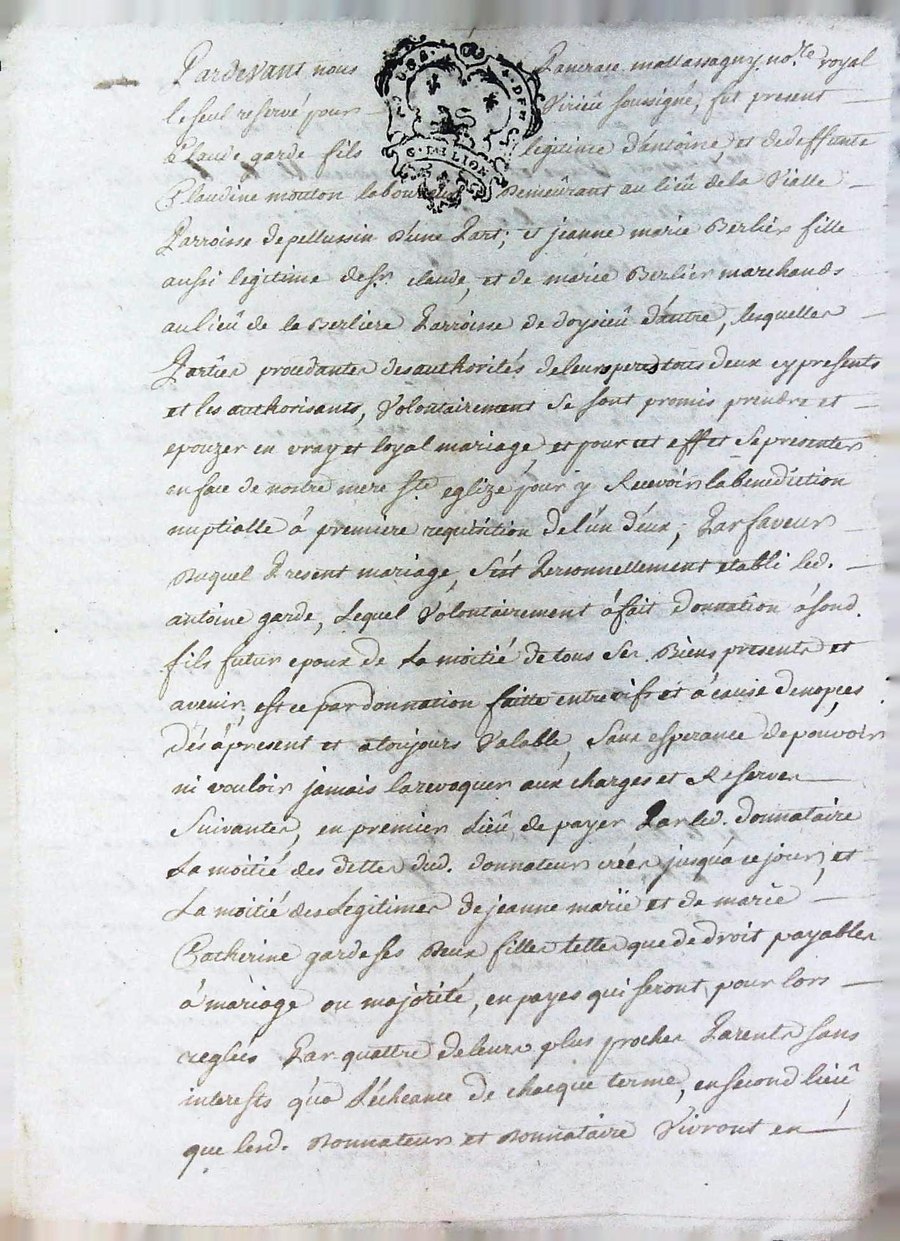 Pardevant nous Pancrace mattassagny no.re royal
le seul reservé pour Virieû soussigné, fut present
Claude garde fils legitime d'antoine et de deffunte
Claudine mouton laboureur Demeûrant au lieû de la Vialle
Parroisse de pellussin D'une Part; et jeanne marie Berlier fille
aussi legitime de sr. claude, et de marie Berlier marchands
au lieû de la Berliere Parroisse de doysieû d'autre, lesquelles
Parties procedantes des authorités de leurs peres tous deux cy presents
et les authorisants, Volontairement se sont promis prendre et
epouzer en vray et loyal mariage et pour cet effet se presenter
en face de nostre mere Ste eglize pour y Recevoir la benediction
nuptialle à premiere requisition de l'un d'eux; Par faveur
Duquel Present mariage, s'est Personnellement etabli led.
antoine garde, Lequel Volontairement à fait Donnation à sond.
fils futur epoux de La moitié de tous ses Biens presents et
avenir, est ce par donnation faitte entre vifs et à cause de nopces
Dés à present et a toujours Valable, Sans esperance de pouvoir
ni vouloir jamais la revoquer aux charges et Reserves
Suivantes, en premier Lieû de payer Par led. Donnataire
La moitié des dettes dud. Donnateur créés jusqu'a ce jour, et
La moitié des Légitimes de jeanne mariè et de marie
Catherine garde ses Deux filles telles que de droit payables
à màriage ou majorité, en payes qui seront pour lors
reglés Par quattre de leurs plus proches Parents sans
interests qu'a L'écheance de chacque terme, en second lieû
que lesd. Donnateur et Donnataire Vivront en